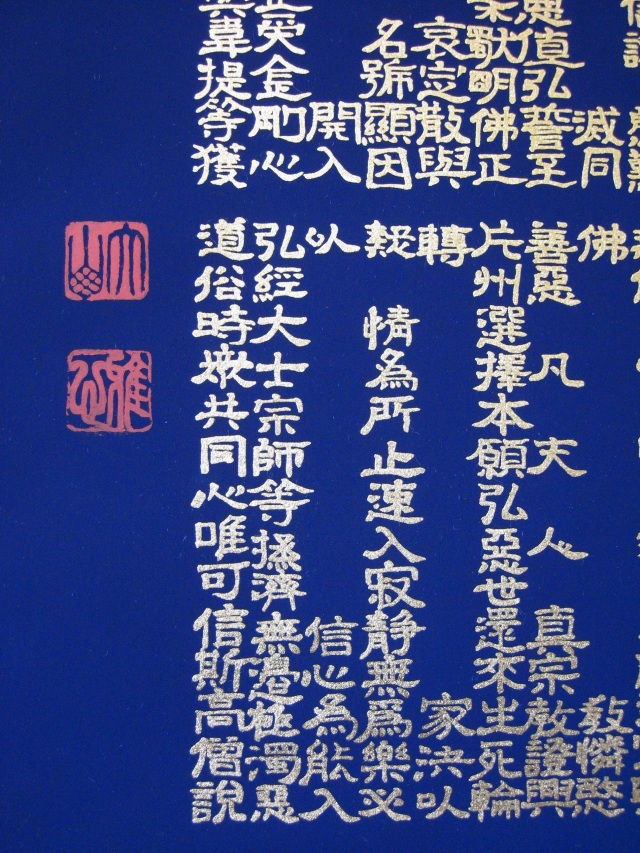 滅同
佛 教憐愍
值弘誓至
善惡凡夫人真宗教證興
明佛正
片州選擇本願弘惡世還來生死輪
哀定散與
轉家決以
名號顯因
疑情為所止速入寂靜無為樂必
開入
以信心為能入
受金剛心
弘經大士宗師等拯濟無邊極濁惡
韋提等獲
道俗時衆共同心唯可信斯高僧說